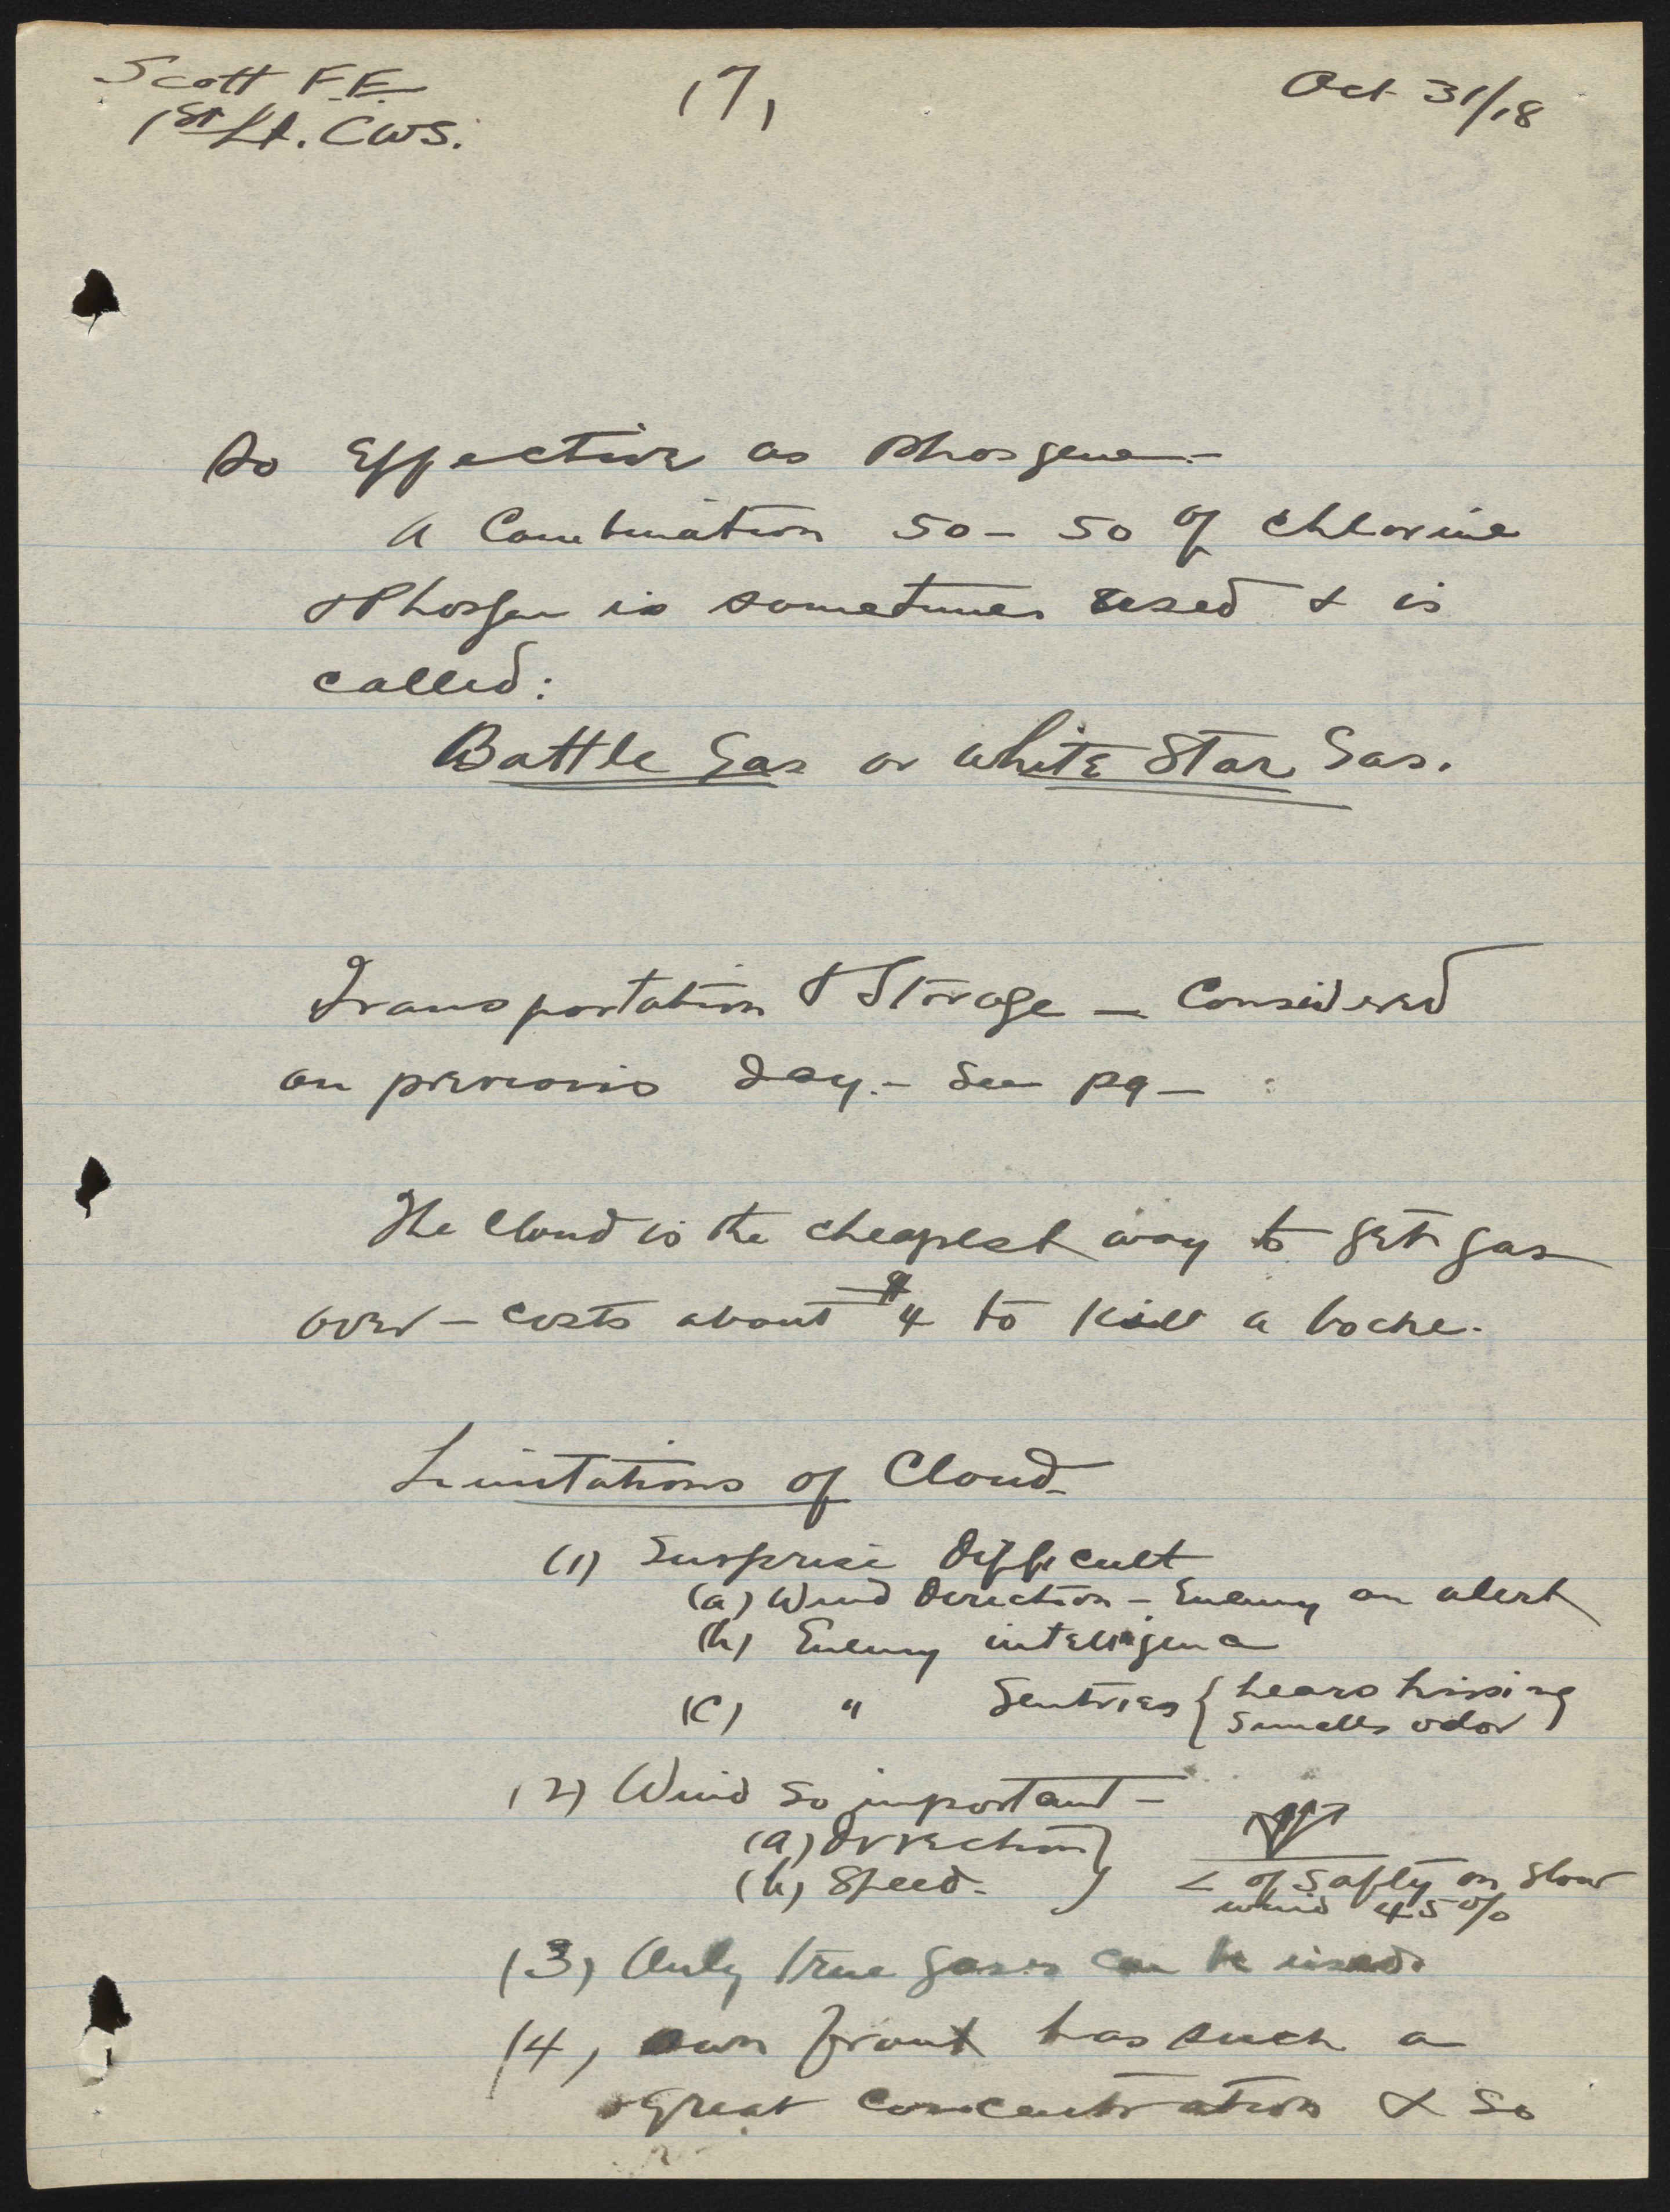 Scott F.E. 17, Oct 31/18
1st Lt. CWS.
so Effective as Phosgene.-
A Combination 50-50 of chlorine
& Phosgen is sometimes used & is
called:
Battle Gas or White Star Gas.
Transportation & Storage - Considered
on previous day.- See pg-
The cloud is the cheapest way to get gas
over - costs about $4 to kill a boche.
Limitations of Cloud-
(1) Surprise difficult
(a) Wind Direction - Enemy on alert
(b) Enemy intelligence
(c) " Sentries { hears hissing
smells odor
(2) Wind so important -
(a) Direction }
(b) Speed.
< of Safty on slow
wind 45%
(3) Only true gases can be used.
(4) own front has such a
great concentration & so